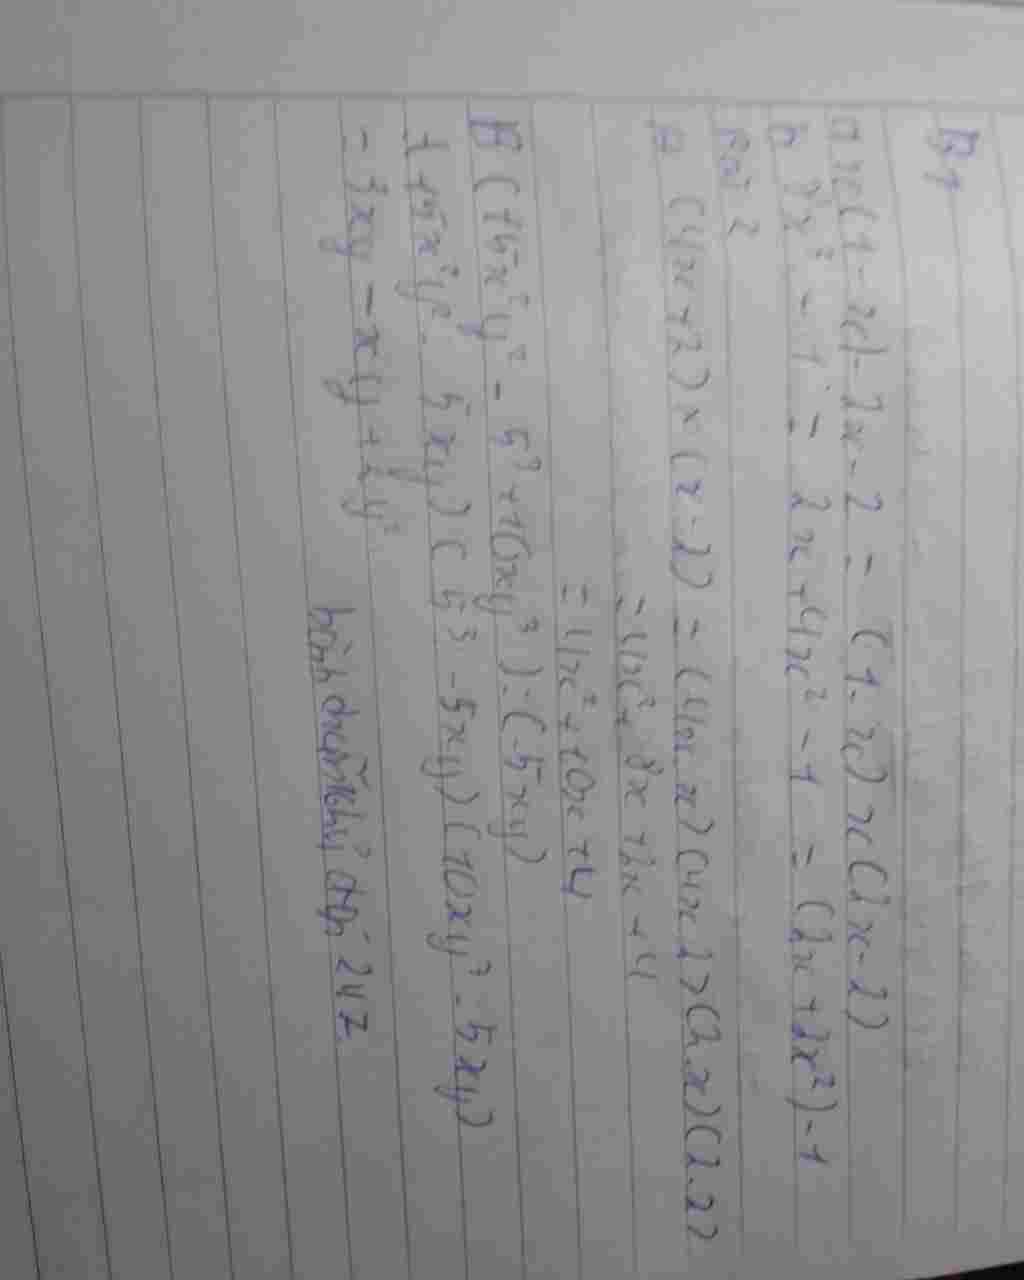 B1
a x(1-x)-2x-2 = (1-x)x(2x-2)
b 8x³-1 = 2x+4x²-1 = (2x+2x²)-1
Bài 2
a (4x+2)×(x-2) = (4x.x)(4x.2)(2.x)(2.2)
=4x²+8x+2x+4
=4x²+10x+4
B (15x²y²-5³+10xy³):(-5xy)
15x²y². 5xy)(5³-5xy)(10xy³-5xy)
-3xy-xy+2y²